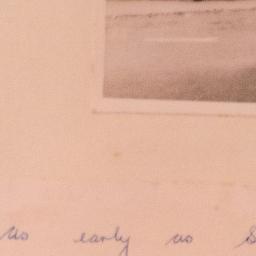 as early as S